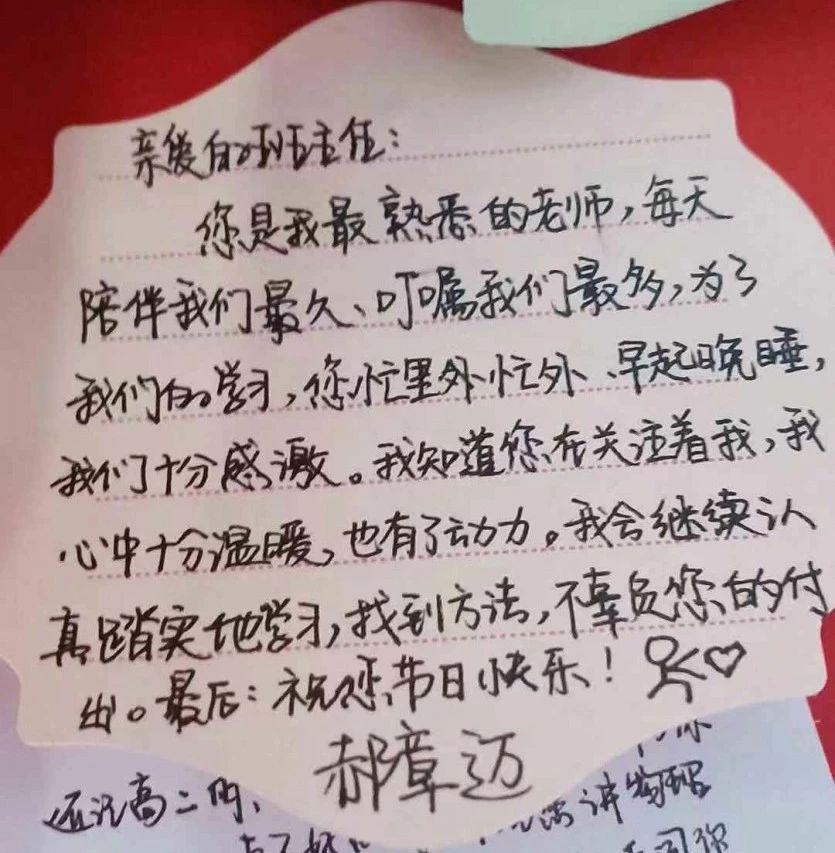 亲爱的班主任：
您是我最熟悉的老师，每天
陪伴我们最久、叮嘱我们最多，为了
我们的学习，您忙里外忙外、早起晚睡，
我们十分感激。我知道您在关注着我，我
心中十分温暖，也有了动力。我会继续认
真踏实地学习，找到方法，不辜负您的付
出。最后：祝您节日快乐！
郝章迈
还记高二时，
讲物理